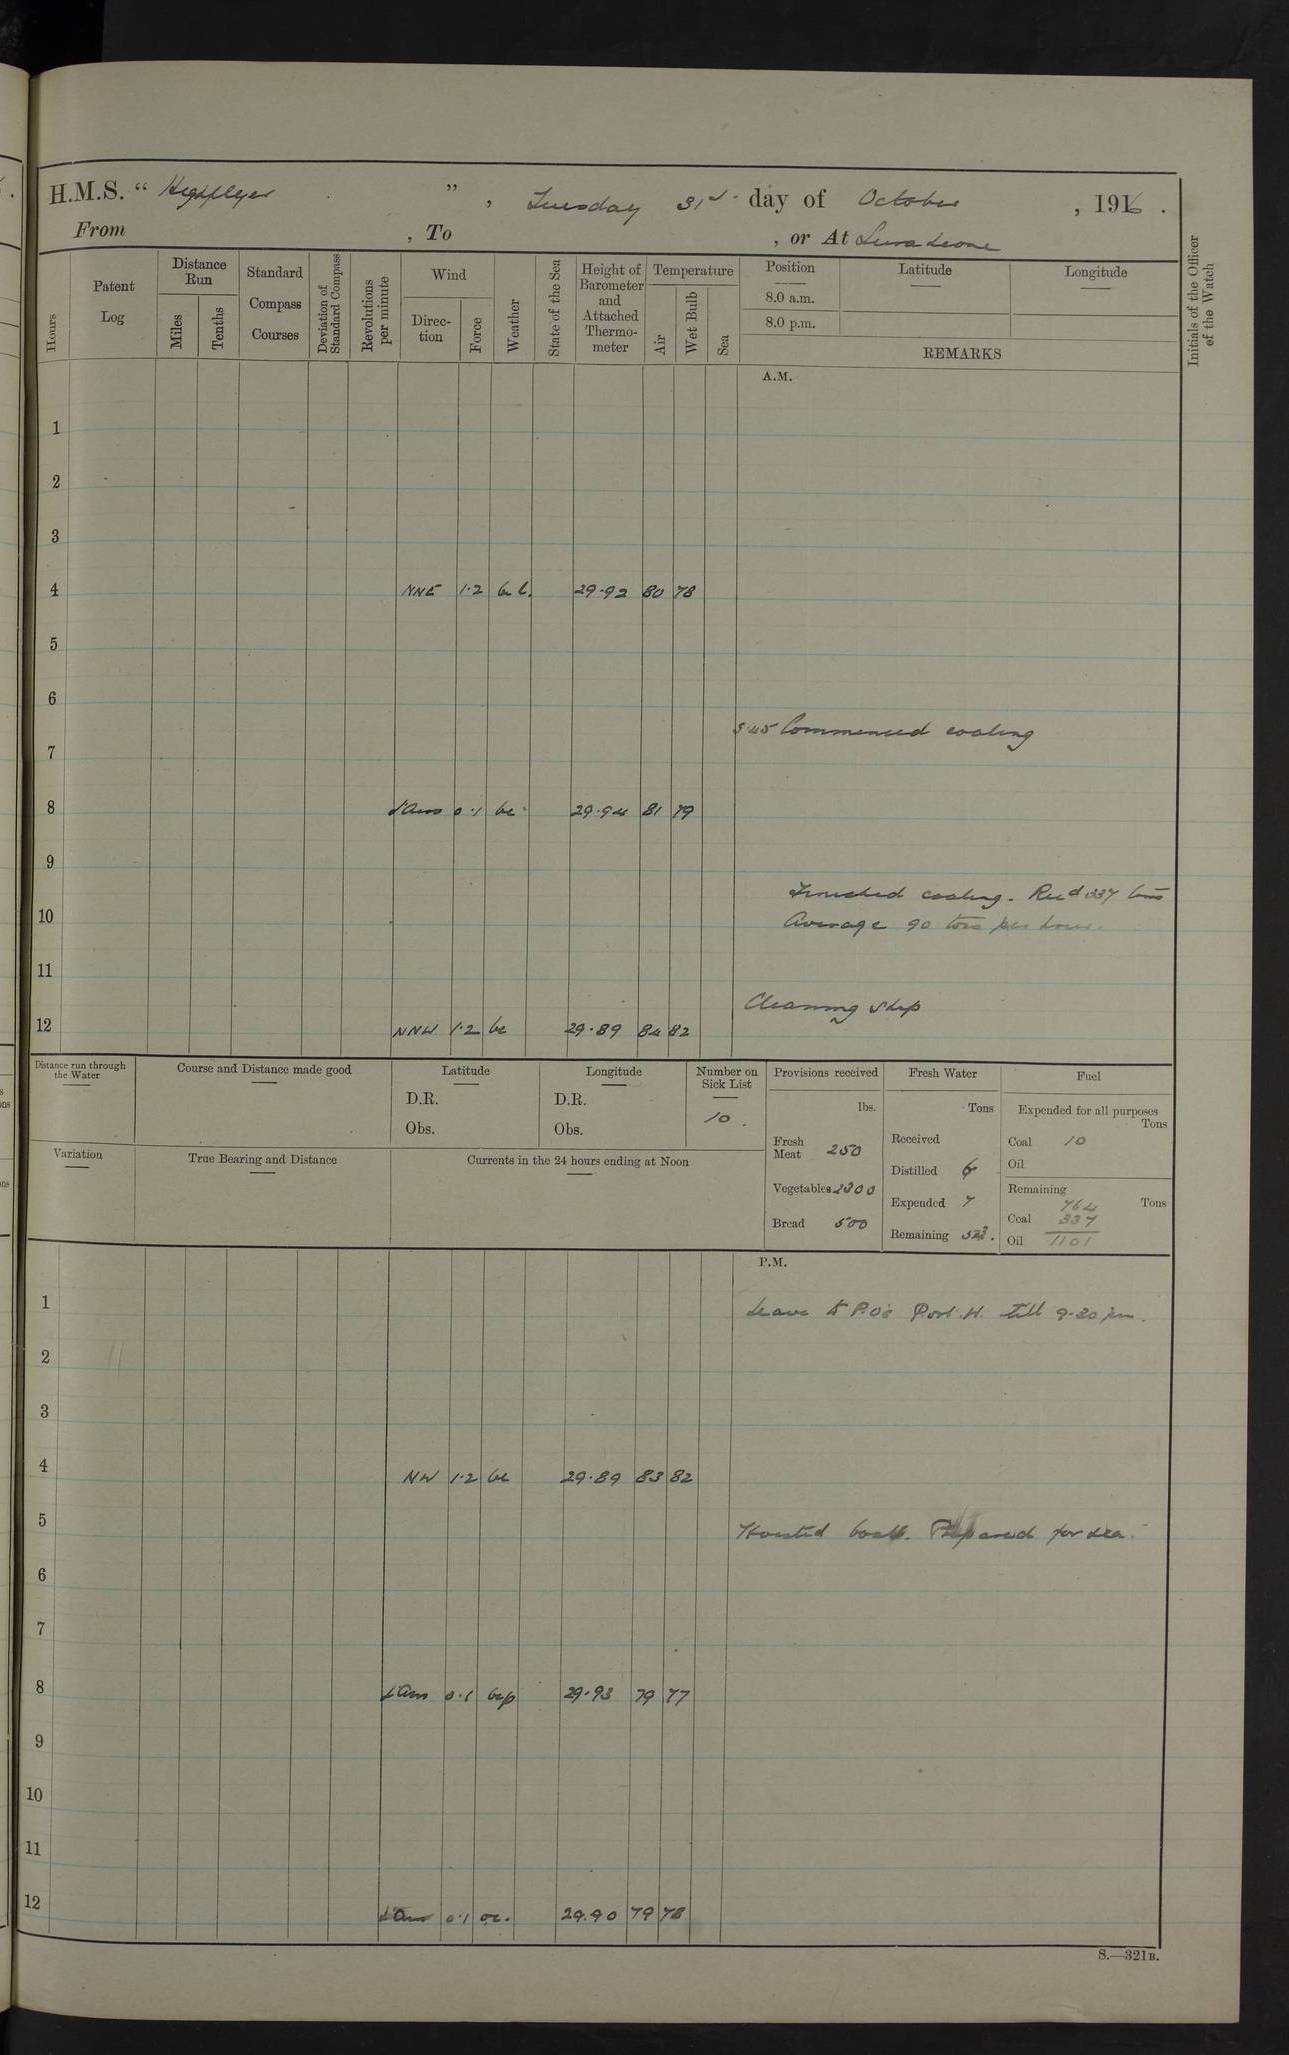 H.M.S. “ Highflyer ” , Tuesday 31st day of October , 1916 .
From , To , or At Sierra Leone
Hours
Patent Log
Distance Run
Miles
Tenths
Standard Compass Courses
Deviation of Standard Compass
Revolutions per minute
Wind
Direc-tion
Force
Weather
State of the Sea
Height of Barometer and Attached Thermo-meter
Temperature
Air
Wet Bulb
Sea
Position
8.0 a.m.
8.0 p.m.
Latitude
Longitude
REMARKS
Initials of the Officer of the Watch
A.M.
1
2
3
4 NNE 1·2 bc l. 29·92 80 78
5
6
5 45 Commenced coaling
7
8 0·1 bc 29·94 81 79
9
Finished coaling. Recd 337 tons
10 Average 90 tons per hour.
11
Cleaning Ship
12 NNW 1·2 bc 29·89 84 82
Distance run through the Water
Course and Distance made good
Latitude
D.R.
Obs.
Longitude
D.R.
Obs.
Number on Sick List
10 .
Provisions received
lbs.
Fresh Meat 250
Vegetables 2300
Bread 500
Fresh Water
Tons
Received
Distilled 6
Expended 7
Remaining
Fuel
Expended for all purposes
Tons
Coal 10
Oil
Remaining
764 Tons
Coal 337
Oil 1101
Variation
True Bearing and Distance
Currents in the 24 hours ending at Noon
P.M.
1 Leave to P.O's Port W. till 9-30 pm.
2
3
4 NW 1·2 bc 29·89 83 82
5 Hoisted boats. Prepared for sea.
6
7
8 0·1 bcp 29·93 79 77
9
10
11
12 0·1 oc. 29.90 79 78
S.—321B.